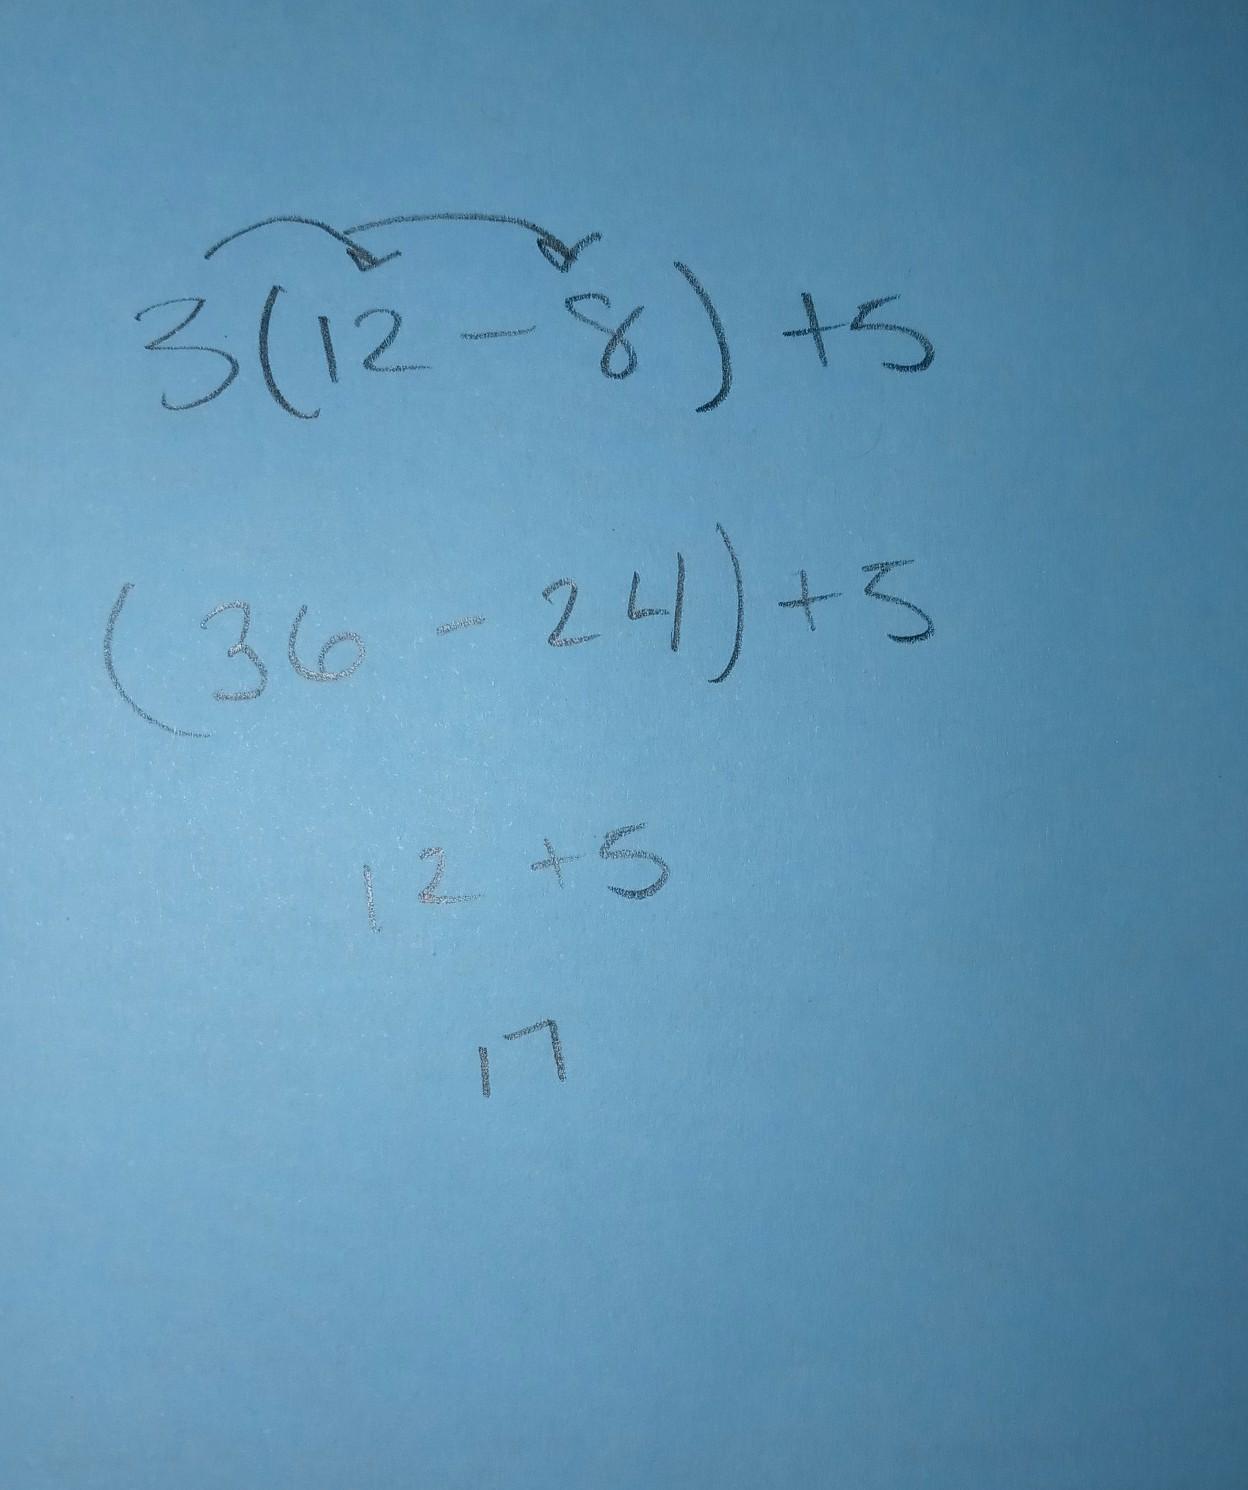 3(12-8)+5
(36-24)+5
12+5
17